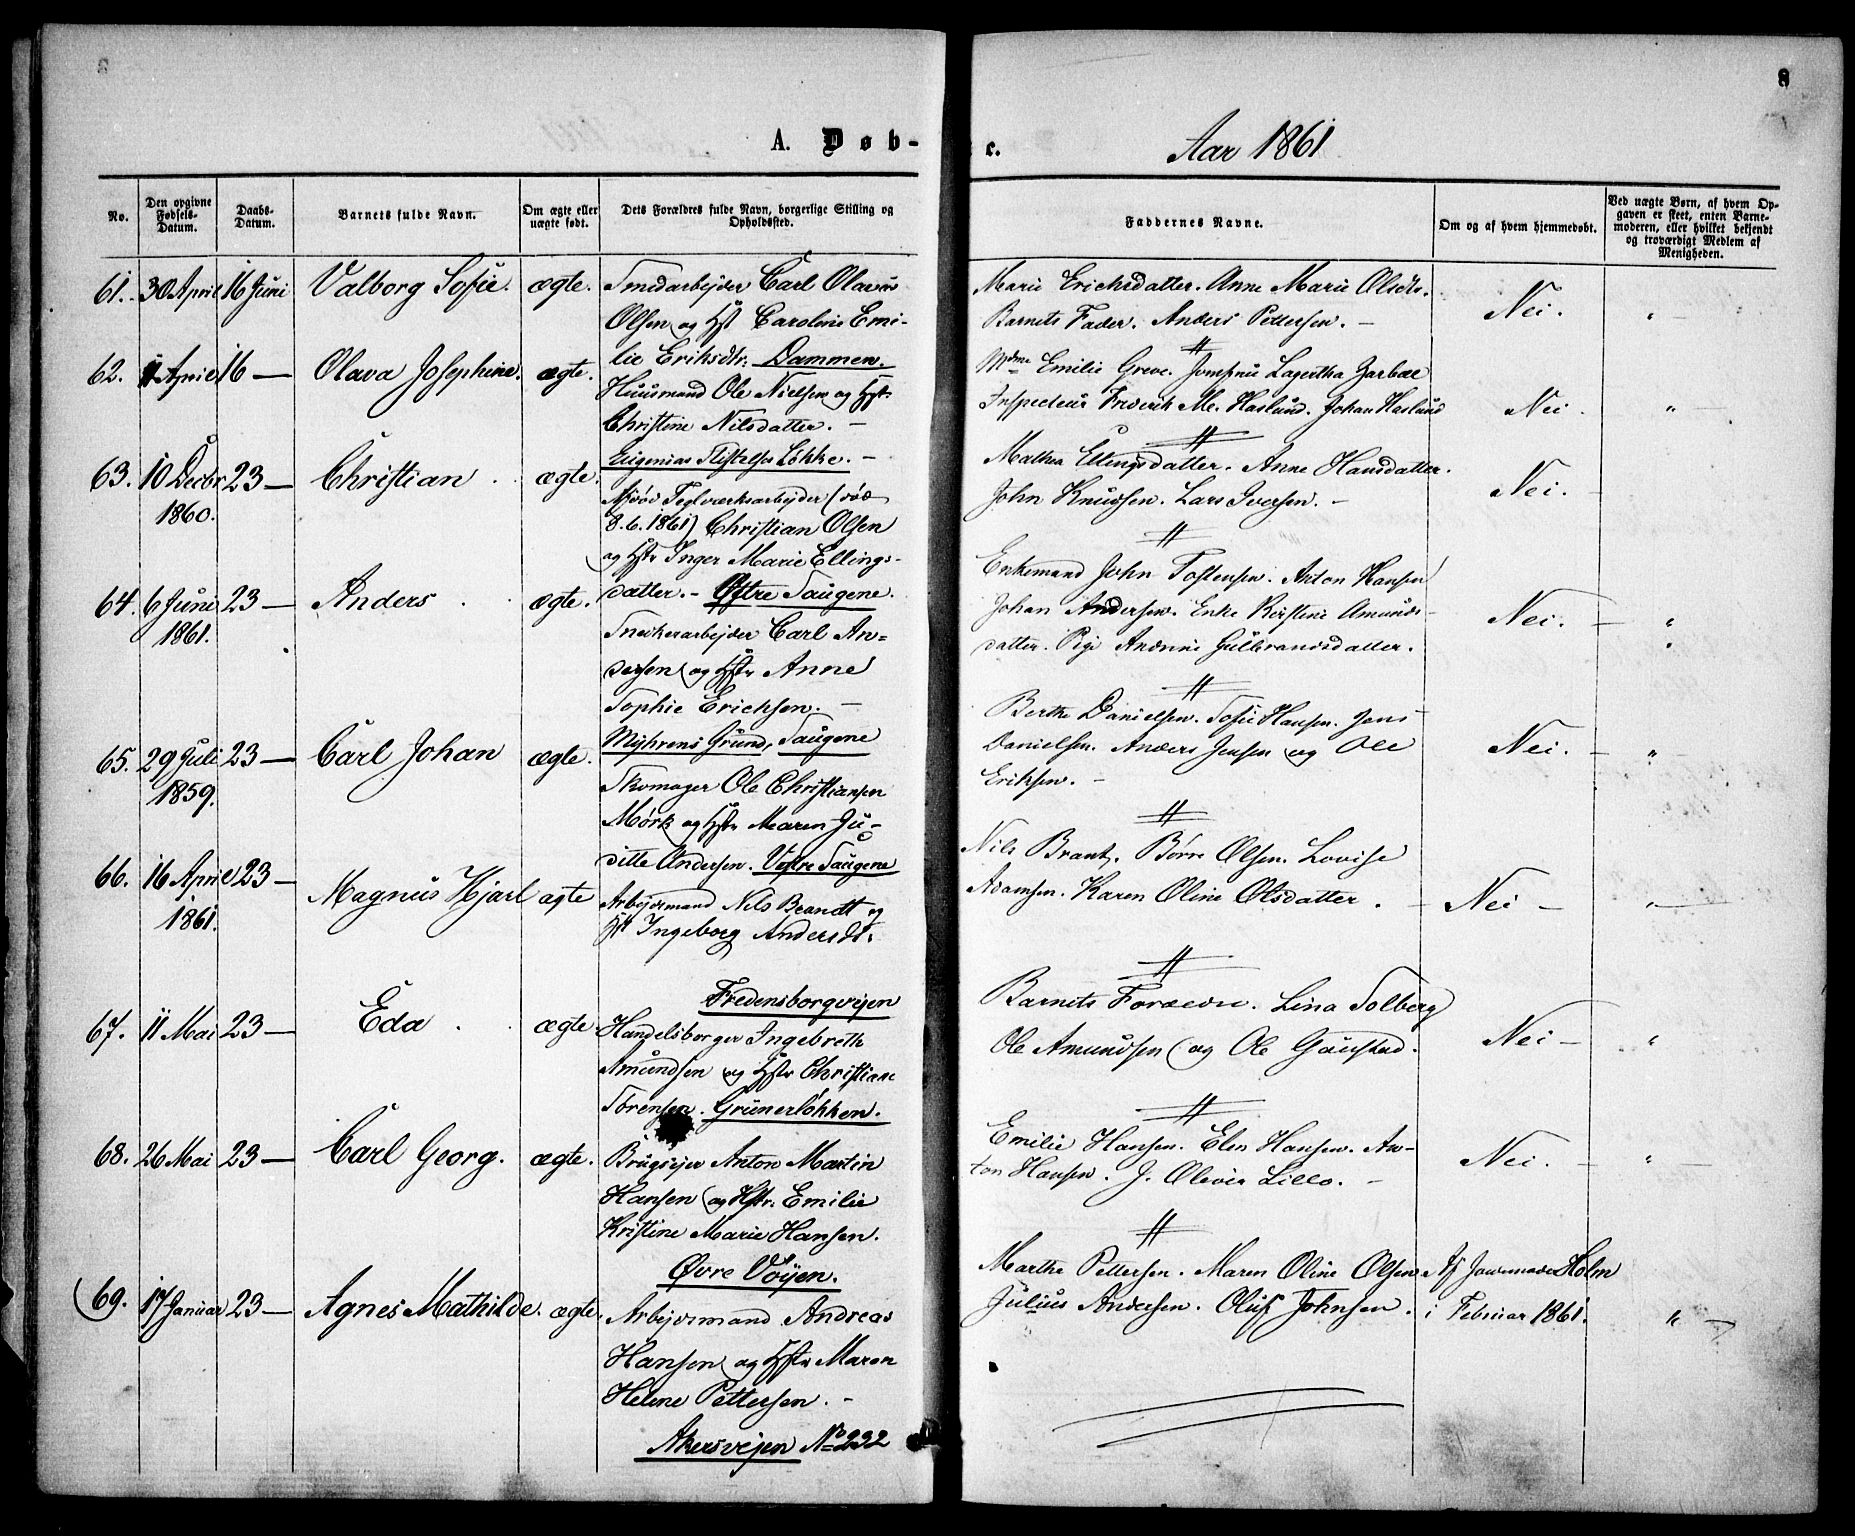 8
A. Døb-
c.
Aar 1861
No.
Den opgivne Fødsels-Datum.
Daabs-Datum.
Barnets fulde Navn.
Om ægte eller uægte født.
Dets Forældres fulde Navn, borgerlige Stilling og Opholdssted.
Faddernes Navne.
Om og af hvem hjemmedøbt.
Ved uægte Børn, af hvem Op-
gaven er skeet, enten Barne-
moderen, eller hvilket bekjendt
og troværdigt Medlem af
Menigheden.
61. 30 April 16 Juni Valborg Sofie. ægte.
Smedarbejder Carl Olavus
Olsen og Hst Caroline Emi-
lie Eriksdtr. Dammen.
Marie Erichsdatter. Anne Marie Olsdtr.
Barnets Fader. Anders Pettersen. —
Nei. " —
62. April 16 — Olava Josephine. ægte.
Huusmand Ole Nielsen og Hst.
Christine Nilsdatter. —
Eugenias Stiftelses Løkke. —
Mdme Emilie Greve. Jomfrue Lagertha
Inspecteur Frederik M. Haslund. Johan Haslund
Nei. " —
63. 10 Decbr 23 — Christian ægte.
1860.
Afdød Teglværksarbejder (død
8.6.1861) Christian Olsen
og Hstr Inger Marie Ellings-
datter. — Østre Saugene.
Mathea Ellingsdatter. Anne Hansdatter.
John Knudsen. Lars Iversen. —
Nei. —
64. 6 Juni 23 — Anders ægte.
1861.
Snedkerarbejder Carl An-
dersen og Hstr Anne
Sophie Erichsen. —
Myhrens Grund, Saugene
Enkemand John Tostensen. Anton Hansen
Johan Andersen. Enke Kirstine Amunds-
datter. Pige Andrine Gulbrandsdatter.
Nei. — "
65. 29 Juli 23 — Carl Johan ægte.
1859.
Skomager Ole Christiansen
Mørk og Hstr Maren Ju-
ditte Andersen. Vestre Saugene
Berthe Danielsen. Sofie Hansen. Jens
Danielsen. Anders Jensen og Ole
Eriksen. —
Nei. — "
66. 16 April 23 — Magnus Hjarl ægte
1861.
Arbejdsmand Nils Brandt og
Hst Ingeborg Andersdt.
Fredensborgveien
Nils Brant. Børre Olsen. Lovise
Adamsen. Karen Oline Olsdatter. —
Nei —
67. 11 Mai 23 — Eda ægte
Handelsborger Ingebreth
Amundsen og Hstr Christiane
Sørensen. Grünerløkken.
Barnets Forældre. Lina Solberg
Ole Amundsen og Ole Gaustad.
Nei — "
68. 26 Mai 23 — Carl Georg. ægte.
Brugsejer Anton Martin
Hansen og Hstr. Emilie
Kristine Marie Hansen.
Øvre Vøyen.
Emilie Hansen. Elen Hansen. An-
ton Hansen. J. Olivia Lillo. —
Nei. — " —
69. 17 Januar 23 — Agnes Mathilde. ægte.
Arbejdsmand Andreas
Hansen og Hstr Maren
Helene Pettersen. —
Akersvejen No 232
Marthe Pettersen. Maren Oline Olsen
Julius Andersen. Oluf Johnsen.
Af Jordemoder Holm
i Februar 1861. " —